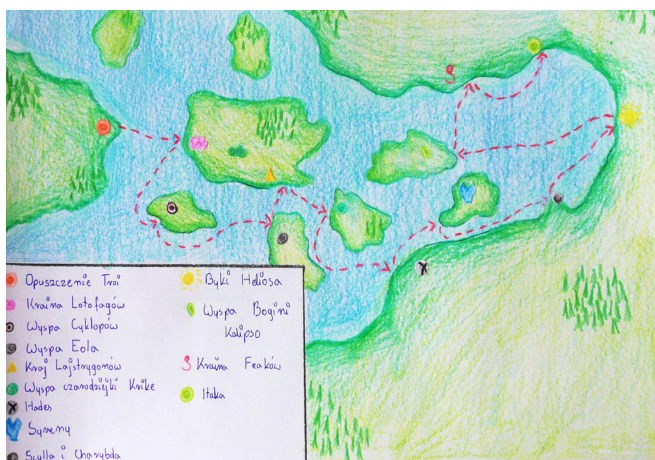 Opuszczenie Troi
Kraina Lotofagów
Wyspa Cyklopów
Wyspa Eola
Kraj Lajstrygonów
Wyspa czarodziejki Kirke
Hades
Syreny
Scylla i Charybda
Byki Heliosa
Wyspa Bogini
Kalipso
Kraina Feaków
Itaka